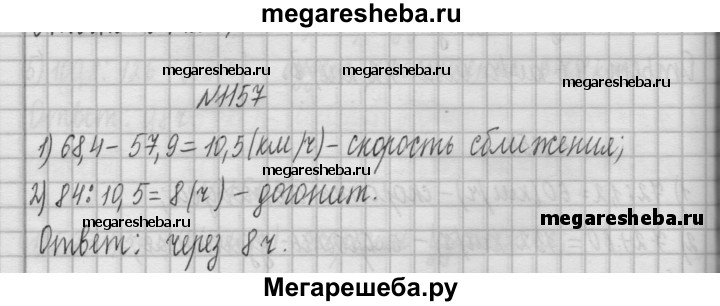 megaresheba.ru
megaresheba.ru megaresheba.ru
megaresheba.ru
№1157
1) 68,4 – 57,9 = 10,5 (км/ч) – скорость сближения;
megaresheba.ru
2) 84 : 10,5 = 8 (ч) – догонит.
megaresheba.ru megaresheba.ru
Ответ: через 8 ч.
Мегарешеба.ру